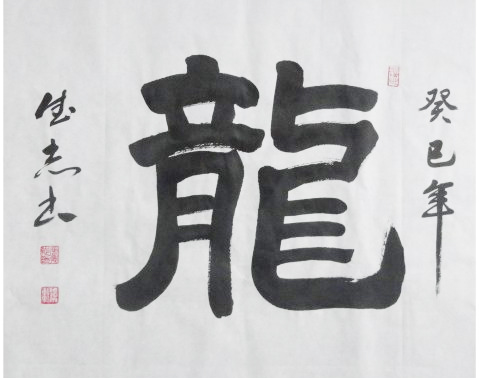 癸巳年
龍
志书